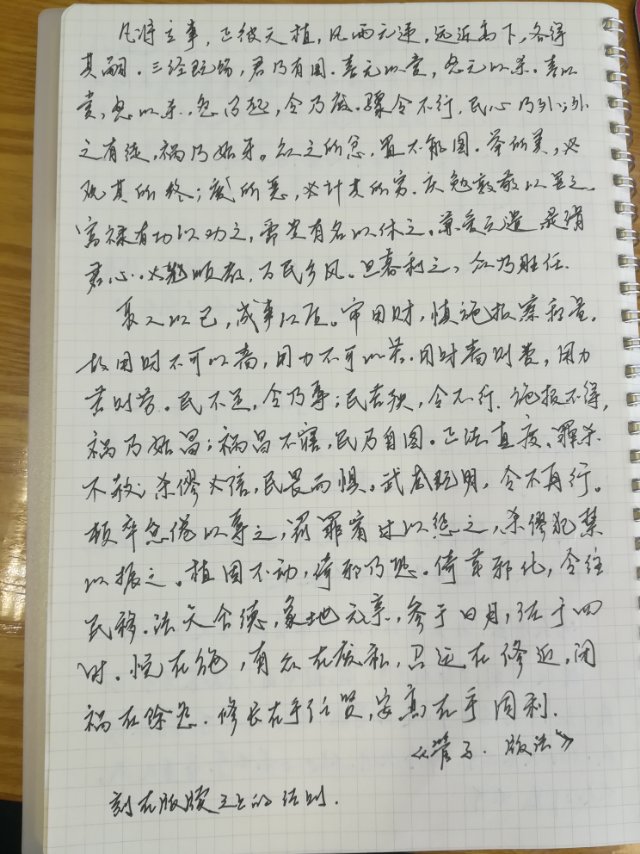 凡将立事,正彼天植,风雨无违,远近高下,各得
其嗣。三经既饬,君乃有国。喜无以赏,怒无以杀。喜以
赏,怒以杀,怨乃起,令乃废。骤令不行,民心乃外;外
之有徒,祸乃始牙。众之所忿,置不能图。举所美,必
观其所终;废所恶,必计其所穷。庆勉敦敬以显之,
富禄有功以劝之,爵贵有名以休之。兼爱无遗,是谓
君心。必先顺教,万民乡风。旦暮利之,众乃胜任。
取人以己,成事以质。审用财,慎施报,察称量。
故用财不可以啬,用力不可以苦。用财啬则费,用力
苦则劳。民不足,令乃辱;民苦殃,令不行。施报不得,
祸乃始昌;祸昌不寤,民乃自图。正法直度,罪杀
不赦;杀僇必信,民畏而惧。武威既明,令不再行。
顿卒怠倦以辱之,罚罪宥过以惩之,杀僇犯禁
以振之。植固不动,倚邪乃恐。倚革邪化,令往
民移。法天合德,象地无亲,参于日月,佐于四
时。悦在施,有众在废私,召远在修近,闭
祸在除怨。修长在乎任贤,安高在乎同利。
《管子·版法》
刻在版牍之上的法则.